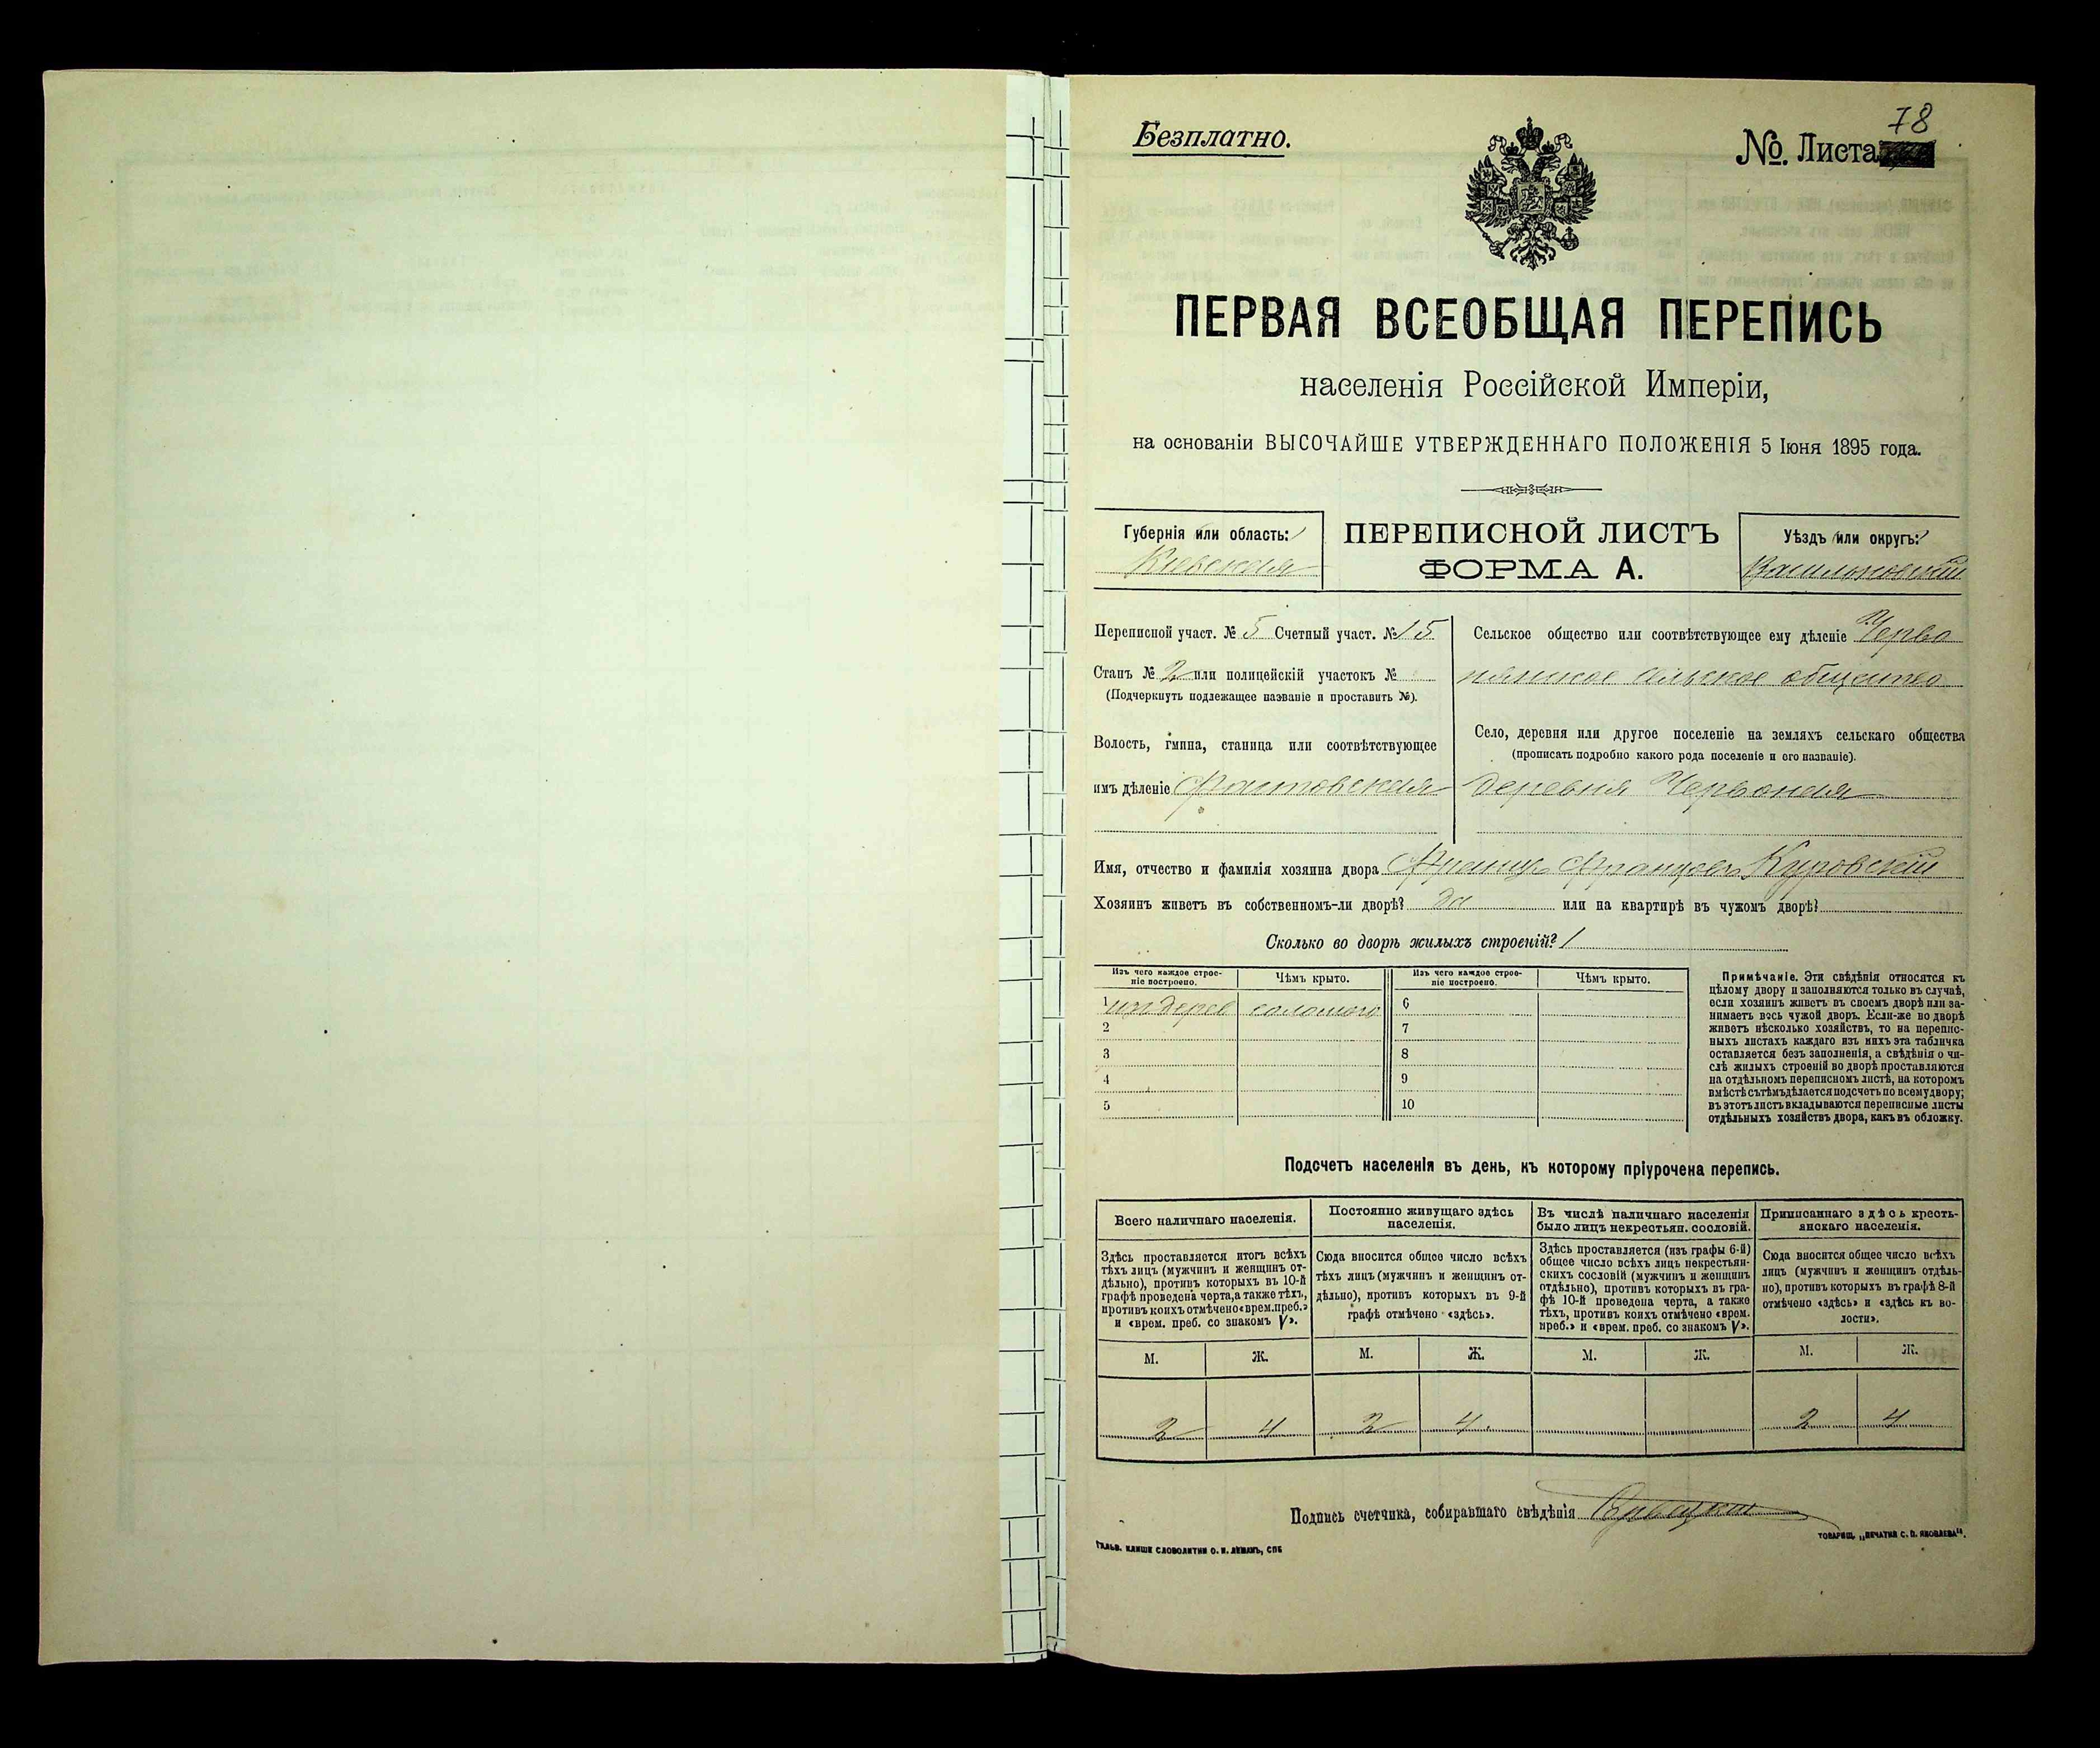 78
Безплатно.
№. Листа
ПЕРВАЯ ВСЕОБЩАЯ ПЕРЕПИСЬ
населенія Россійской Имперіи,
на основаніи ВЫСОЧАЙШЕ УТВЕРЖДЕННАГО ПОЛОЖЕНІЯ 5 Іюня 1895 года.
Губернія или область:
Кіевская
ПЕРЕПИСНОЙ ЛИСТЪ
ФОРМА А.
Уѣздъ или округъ:
Васильковскій
Переписной участ. № 5 Счетный участ. № 15
Станъ № 2 или полицейскій участокъ №
(Подчеркнуть подлежащее названіе и проставить №).
Волость, гмина, станица или соотвѣтствующее
имъ дѣленіе Фастовская
Сельское общество или соотвѣтствующее ему дѣленіе Черво
нянское сельское общество
Село, деревня или другое поселеніе на земляхъ сельскаго общества
(прописать подробно какого рода поселеніе и его названіе).
деревня Червоная
Имя, отчество и фамилія хозяина двора Францъ Францовъ Куровскій
Хозяинъ живетъ въ собственномъ-ли дворѣ? да или на квартирѣ въ чужомъ дворѣ?
Сколько во дворѣ жилыхъ строеній? 1
Изъ чего каждое строе-
ніе построено.
Чѣмъ крыто.
Изъ чего каждое строе-
ніе построено.
Чѣмъ крыто.
1 изъ дерев соломою 6
2 7
3 8
4 9
5 10
Примѣчаніе. Эти свѣдѣнія относятся къ
цѣлому двору и заполняются только въ случаѣ,
если хозяинъ живетъ въ своемъ дворѣ или за-
нимаетъ весь чужой дворъ. Если-же во дворѣ
живетъ нѣсколько хозяйствъ, то на перепис-
ныхъ листахъ каждаго изъ нихъ эта табличка
оставляется безъ заполненія, а свѣдѣнія о чи-
слѣ жилыхъ строеній во дворѣ проставляются
на отдѣльномъ переписномъ листѣ, на которомъ
вмѣстѣ съ тѣмъ дѣлается подсчетъ по всему двору;
въ этотъ листъ вкладываются переписные листы
отдѣльныхъ хозяйствъ двора, какъ въ обложку.
Подсчетъ населенія въ день, къ которому пріурочена перепись.
Всего наличнаго населенія.
Здѣсь проставляется итогъ всѣхъ
тѣхъ лицъ (мужчинъ и женщинъ от-
дѣльно), противъ которыхъ въ 10-й
графѣ проведена черта, а также тѣхъ,
противъ коихъ отмѣчено «врем. преб.»
и «врем. преб. со знакомъ V».
Постоянно живущаго здѣсь
населенія.
Сюда вносится общее число всѣхъ
тѣхъ лицъ (мужчинъ и женщинъ от-
дѣльно), противъ которыхъ въ 9-й
графѣ отмѣчено «здѣсь».
Въ числѣ наличнаго населенія
было лицъ некрестьян. сословій.
Здѣсь проставляется (изъ графы 6-й)
общее число всѣхъ лицъ некрестьян-
скихъ сословій (мужчинъ и женщинъ
отдѣльно), противъ которыхъ въ гра-
фѣ 10-й проведена черта, а также
тѣхъ, противъ коихъ отмѣчено «врем.
преб.» и «врем. преб. со знакомъ V».
Приписаннаго здѣсь кресть-
янскаго населенія.
Сюда вносится общее число всѣхъ
лицъ (мужчинъ и женщинъ отдѣль-
но), противъ которыхъ въ графѣ 8-й
отмѣчено «здѣсь» и «здѣсь къ во-
лости».
М. Ж. М. Ж. М. Ж. М. Ж.
2 4 2 4 2 4
Подпись счетчика, собиравшаго свѣдѣнія
Гальв. клише словолитни О. И. Леманъ, СПБ
Товарищ. „Печатня С. П. Яковлева“.